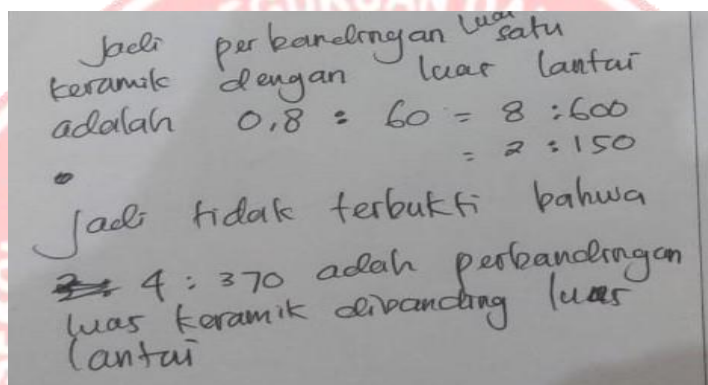 Jadi perbandingan luas satu
keramik dengan luas lantai
adalah 0,8 : 60 = 8 : 600
= 2 : 150
Jadi tidak terbukti bahwa
4 : 370 adah perbandingan
luas keramik dibanding luas
lantai